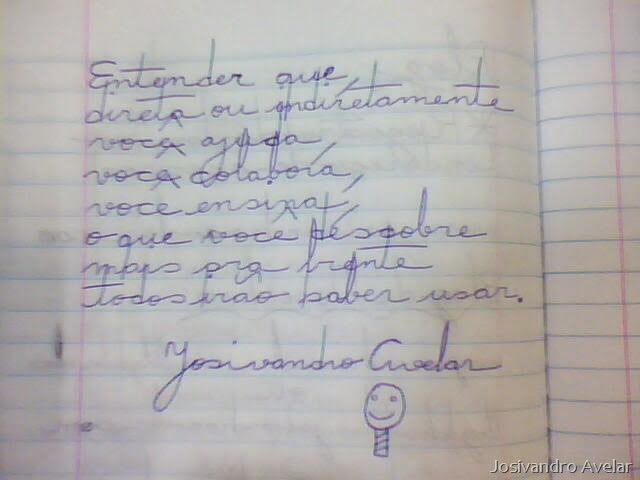 Entender que,
direta ou indiretamente
você ajuda,
você colabora,
você ensina,
o que você descobre
mais pra frente
todos irão saber usar.
Josivandro Avelar
Josivandro Avelar